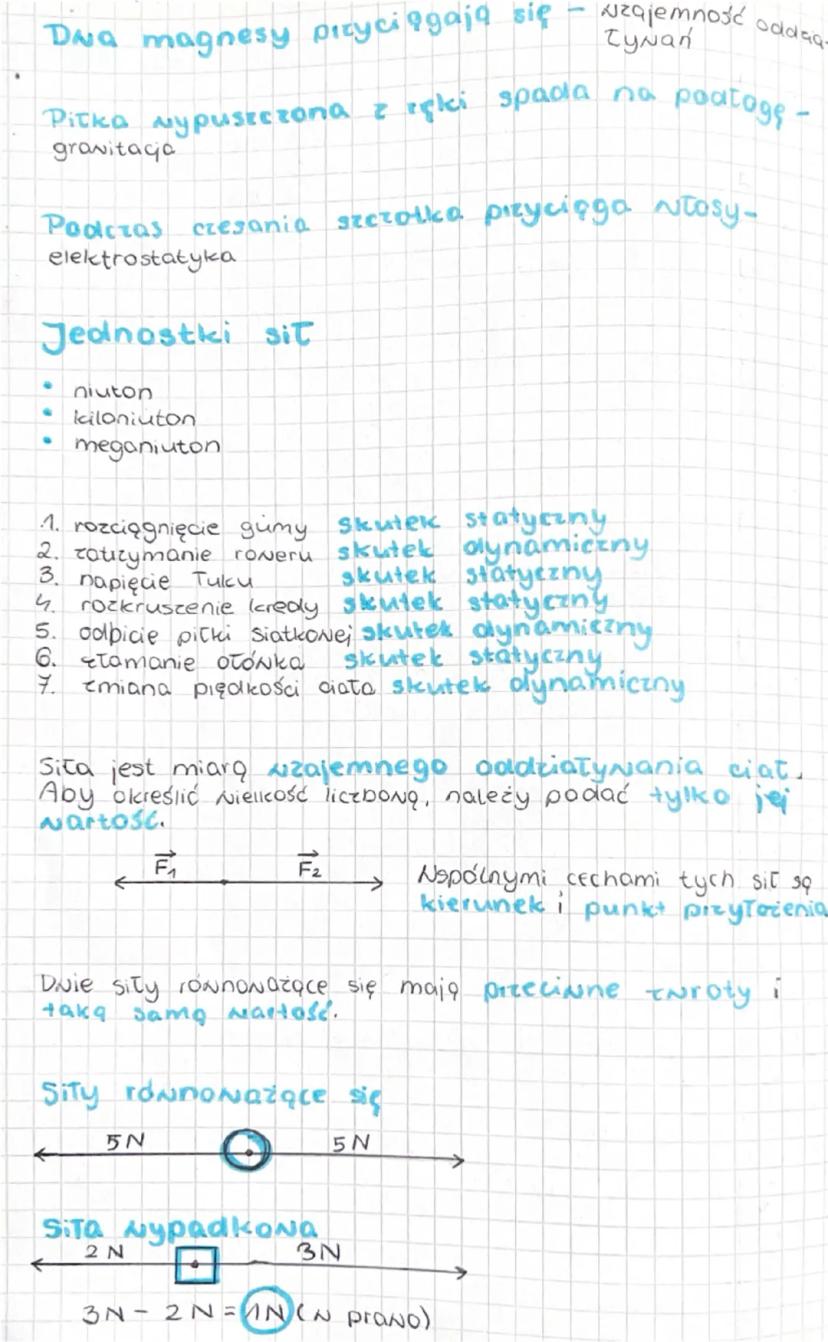 Dwa magnesy przyciągają się - wzajemność oddzia-
ływań
Piłka wypuszczona z ręki spada na podłogę -
grawitacja
Podczas czesania szczotka przyciąga włosy-
elektrostatyka
Jednostki sił
• niuton
• kiloniuton
• meganiuton
1. rozciągnięcie gumy skutek statyczny
2. zatrzymanie roweru skutek dynamiczny
3. napięcie łuku skutek statyczny
4. rozkruszenie kredy skutek statyczny
5. odbicie piłki siatkowej skutek dynamiczny
6. złamanie ołówka skutek statyczny
7. zmiana prędkości ciała skutek dynamiczny
Siła jest miarą wzajemnego oddziaływania ciał.
Aby określić wielkość liczbową, należy podać tylko jej
wartość.
F₁ F₂ Wspólnymi cechami tych sił są
kierunek i punkt przyłożenia
Dwie siły równoważące się mają przeciwne zwroty i
taką samą wartość.
Siły równoważące się
5N 5N
Siła wypadkowa
2N 3N
3N - 2N = 1N (w prawo)